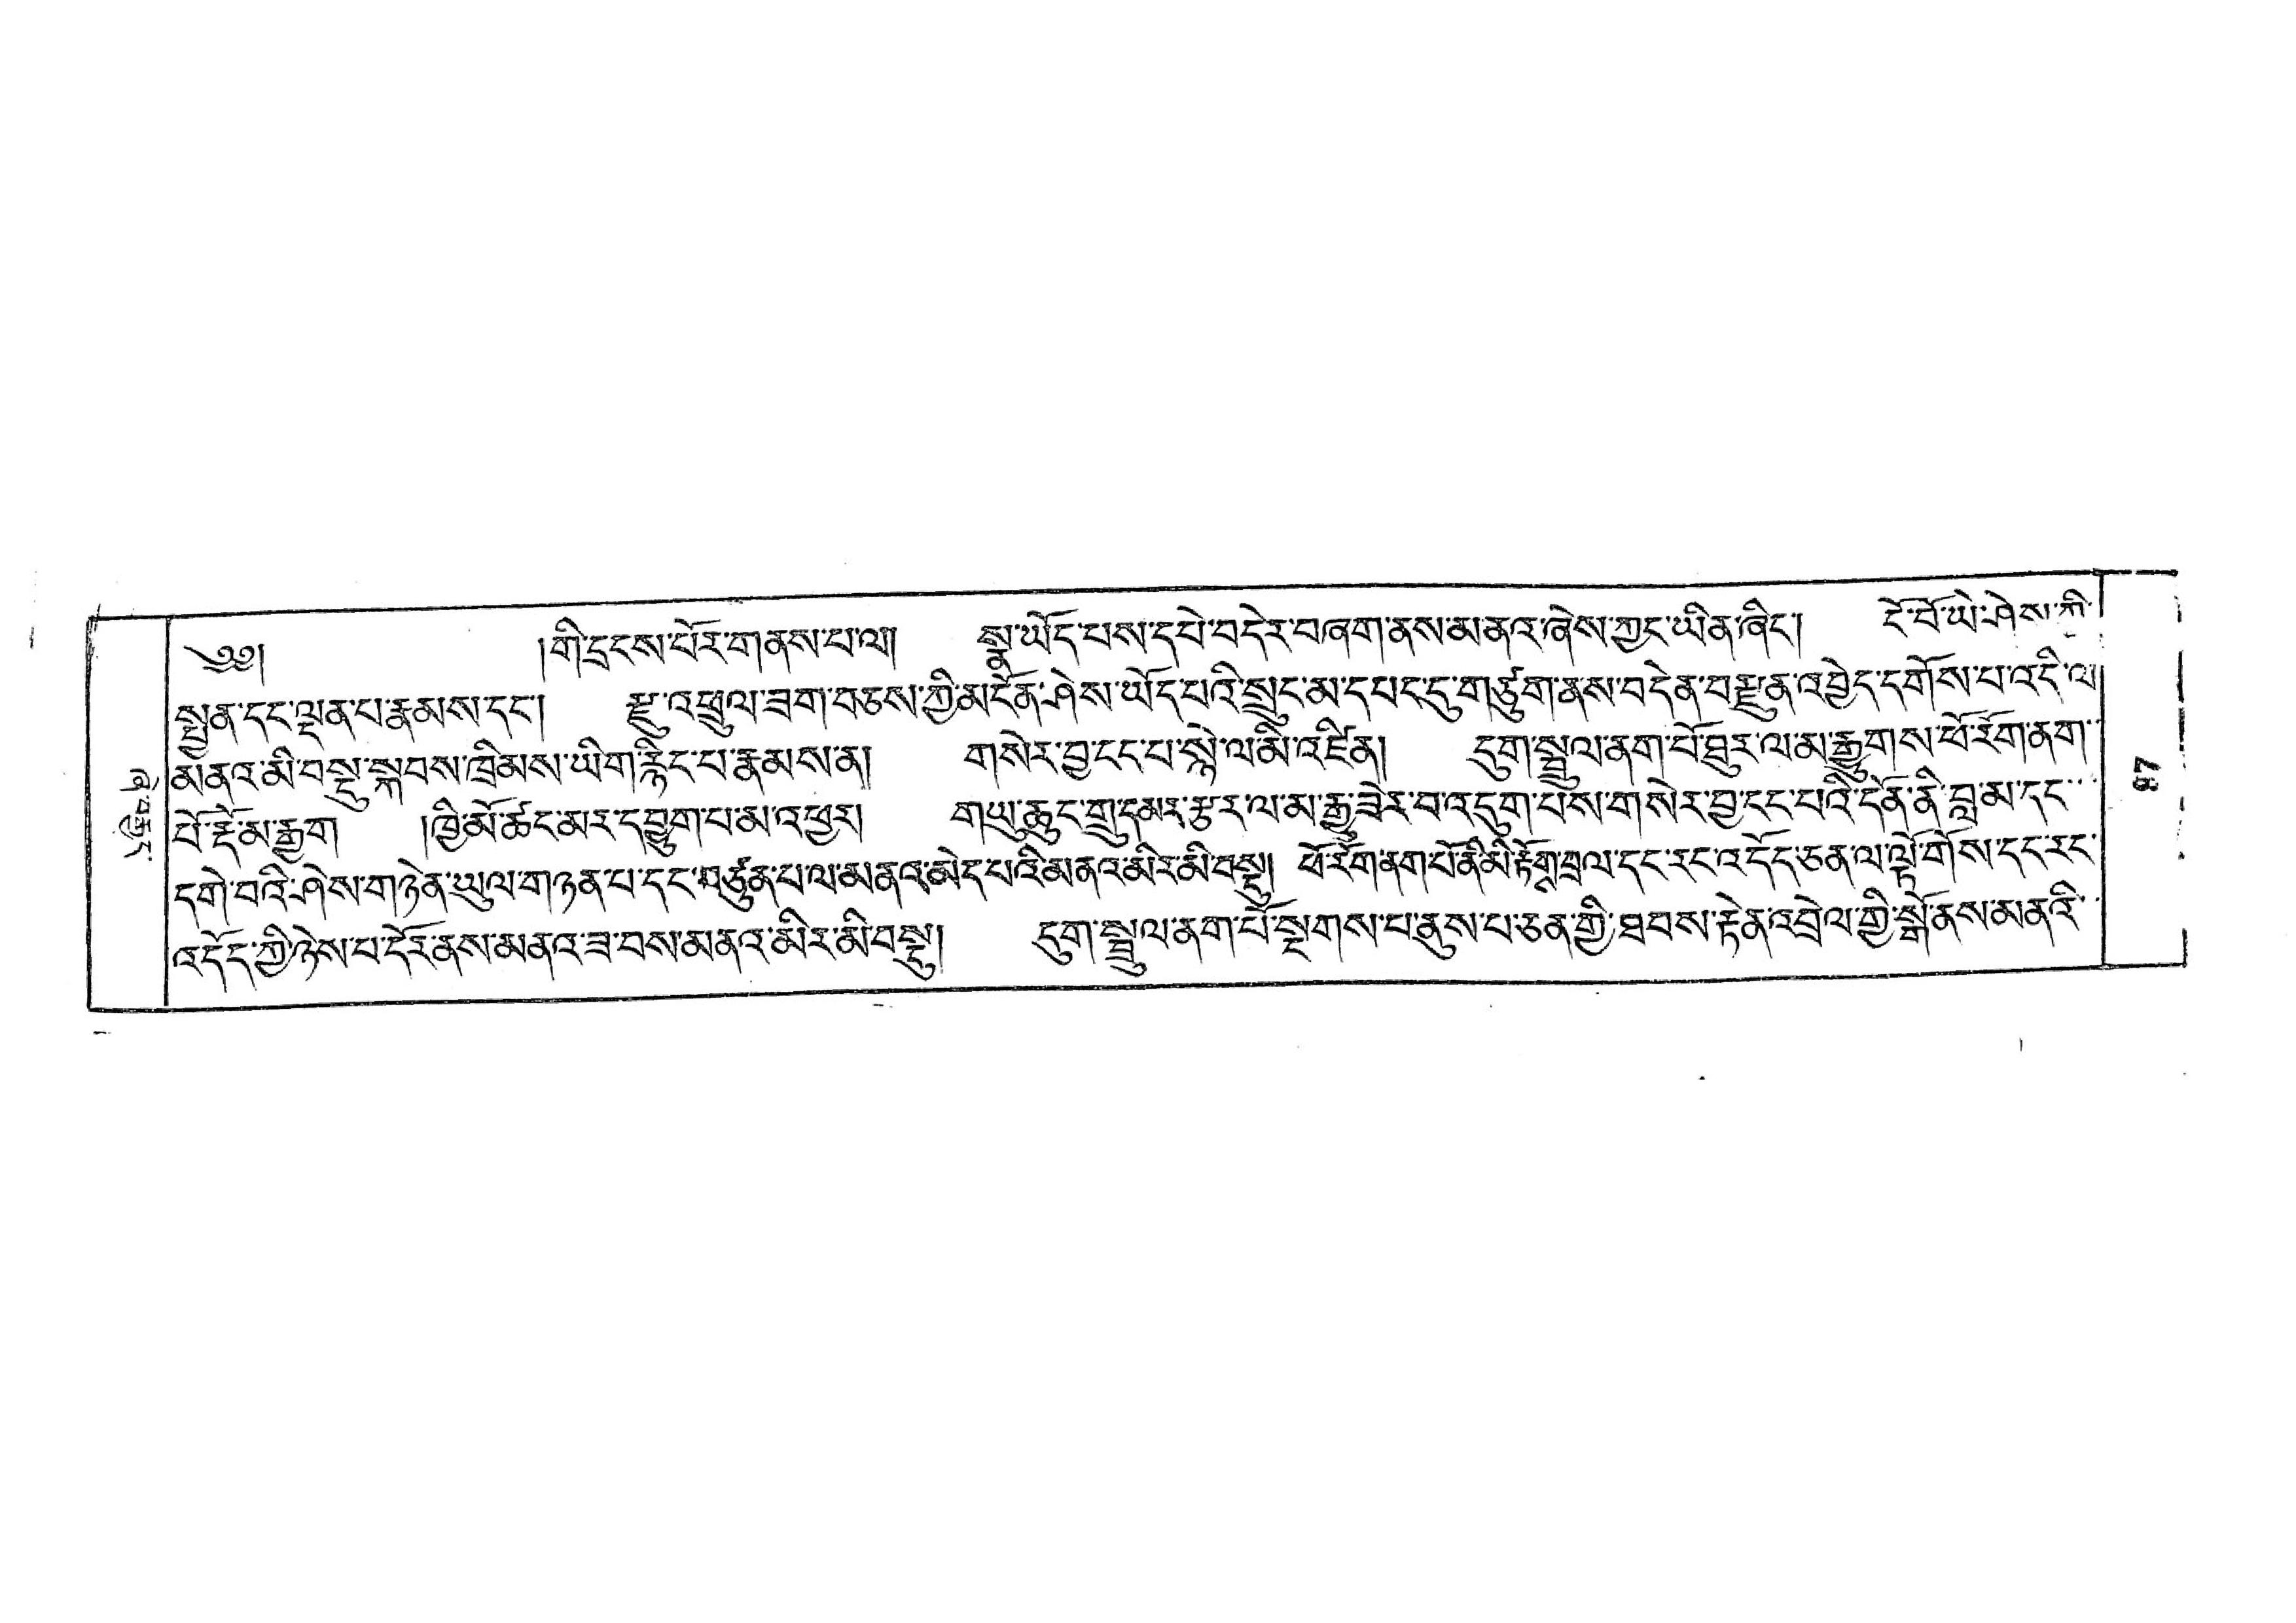 ༄༅། །གི་དྲངས་པོར་གནས་པ་ལ། སྣ་ཡོད་པས་དཔེ་བདེར་བཞག་ནས་མནའ་ཞེས་ཀྱང་ཡིན་ཞིང་། ངོ་བོ་ཡེ་ཤེས་ཀྱི་
སྤྱན་དང་ལྡན་པ་རྣམས་དང་། རྫུ་འཕྲུལ་ཟག་བཅས་ཀྱི་མངོན་ཤེས་ཡོད་པའི་སྲུང་མ་དཔང་དུ་གཙུག་ནས་བདེན་བརྫུན་འབྱེད་དགོས་པ་འདི་ལ།
མནའ་མི་བསྡུ་སྐབས་ཁྲིམས་ཡིག་རྙིང་པ་རྣམས་ན། གསེར་བྱ་ངང་པ་སྙེ་ལ་མི་འཛིན། དུག་སྦྲུལ་ནག་པོ་ཐུར་ལ་མ་རྒྱུགས་ཕོ་རོག་ནག་
པོ་རྡོ་མ་རྒྱག །ཁྱི་མོ་ཚང་མར་དབྱུག་པ་མ་འཕྱར། གཡུ་ཆུང་གྲུ་དམར་རྩར་ལ་མ་རྒྱུ་ཟེར་བ་འདུག་པས་གསེར་བྱ་ངང་པའི་དོན་ནི་བླ་མ་དང་
དགེ་བའི་ཤེས་གཉེན་ཡུལ་གཉན་པ་དང་བཙུན་པ་ལ་མནའ་མེད་པའི་མནའ་མིར་མི་བསྡུ། ཕོ་རོག་ནག་པོ་ནི་མི་རྟོག་བྲལ་དང་རང་འདོད་ཅན་ལ་ལྟོ་གོས་དང་རང་
འདོད་ཀྱི་ཉེས་པ་དོར་ནས་མནའ་ཟ་བས་མནའ་མིར་མི་བསྡུ། དུག་སྦྲུལ་ནག་པོ་སྔགས་པ་ནུས་པ་ཅན་གྱི་ཐབས་རྟེན་འབྲེལ་གྱི་སྒོ་ནས་མནའི་